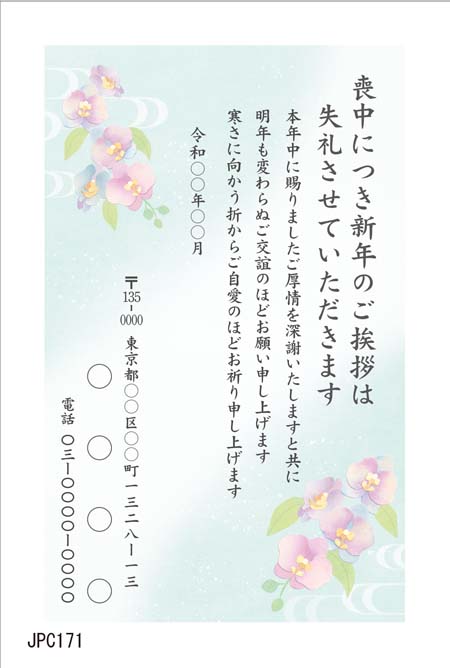 喪中につき新年のご挨拶は
失礼させていただきます
本年中に賜りましたご厚情を深謝いたしますと共に
明年も変わらぬご交誼のほどお願い申し上げます
寒さに向かう折からご自愛のほどお祈り申し上げます
令和〇〇年〇〇月
〒135-0000
東京都〇〇区〇〇町一三二八ー一三
〇〇〇〇
電話 〇三ー〇〇〇〇ー〇〇〇〇
JPC171